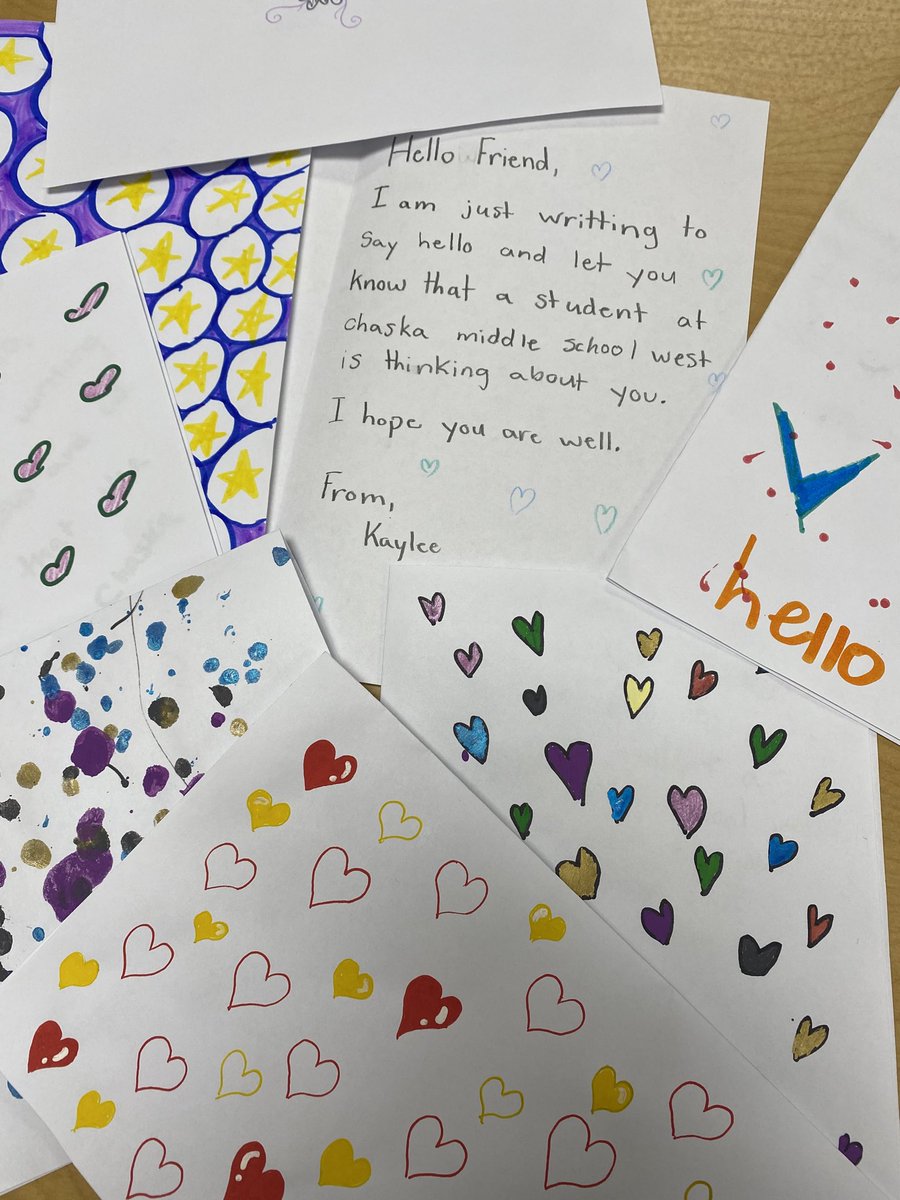 Hello Friend,
I am just writting to
say hello and let you
know that a student at
chaska middle school west
is thinking about you.
I hope you are well.
From,
Kaylee
hello
Chaska